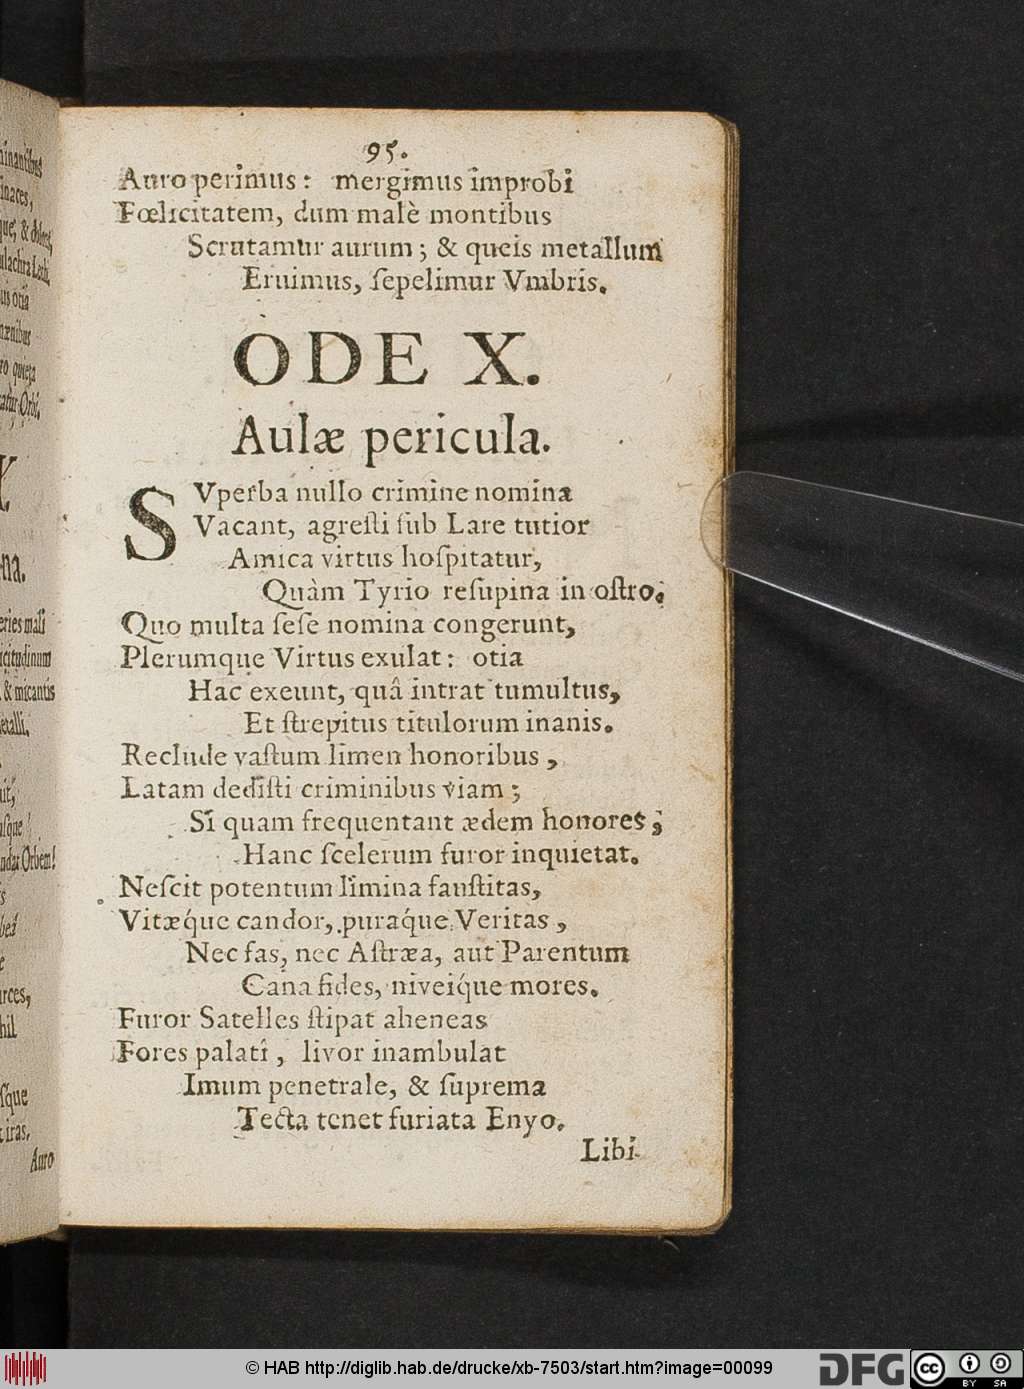 95.
Auro perimus: mergimus improbi
Fœlicitatem, dum malè montibus
Scrutamur aurum; & queis metallum
Eruimus, ſepelimur Vmbris.
ODE X.
Aulæ pericula.
SVperba nullo crimine nomina
Vacant, agreſti ſub Lare tutior
Amica virtus hoſpitatur,
Quàm Tyrio reſupina in oſtro.
Quo multa ſeſe nomina congerunt,
Plerumque Virtus exulat: otia
Hac exeunt, quâ intrat tumultus,
Et ſtrepitus titulorum inanis.
Reclude vaſtum limen honoribus,
Latam dediſti criminibus viam;
Si quam frequentant ædem honores,
Hanc ſcelerum furor inquietat.
Neſcit potentum limina fauſtitas,
Vitæq́ue candor, puraq́ue Veritas,
Nec fas, nec Aſtræa, aut Parentum
Cana fides, niveiq́ue mores.
Furor Satelles ſtipat aheneas
Fores palatî, livor inambulat
Imum penetrale, & ſuprema
Tecta tenet furiata Enyo.
Libi
quieta
X
na.
& micantis
etalli.
ſque
iras.
Auro
© HAB http://diglib.hab.de/drucke/xb-7503/start.htm?image=00099
DFG
cc
BY SA